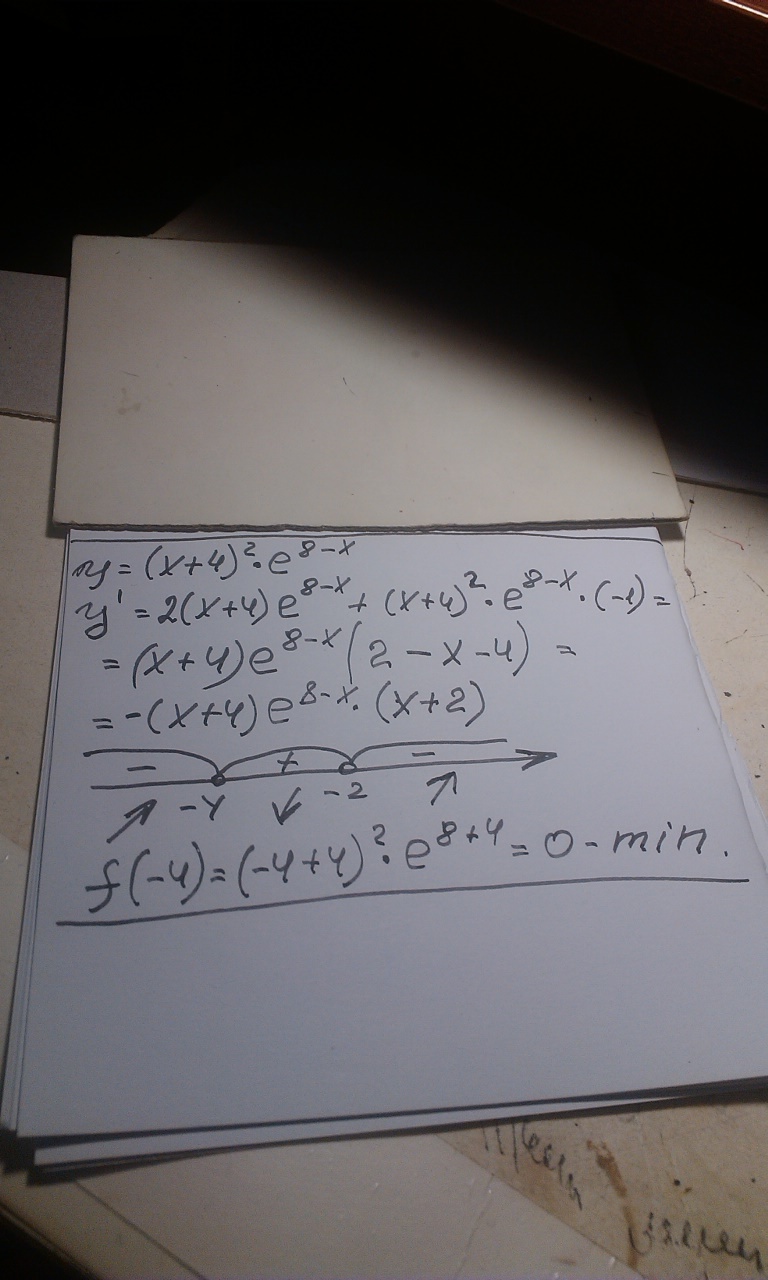 y = (x+4)²·e^(8-x)
y' = 2(x+4)e^(8-x) + (x+4)²·e^(8-x)·(-1) =
= (x+4)e^(8-x)(2-x-4) =
= -(x+4)e^(8-x)·(x+2)
- + -
↗ -4 ↙ -2 ↗
f(-4) = (-4+4)²·e^(8+4) = 0 - min.